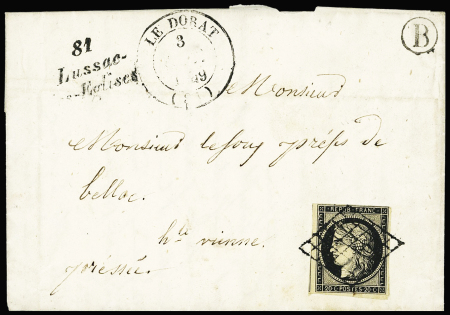 81
Lussac-
s-Eglises
LE DORAT
3
49
B
Monsieur
Monsieur de
Bellac.
hte vienne.
pressée.
REPUB. FRANC.
20 C POSTES 20 C